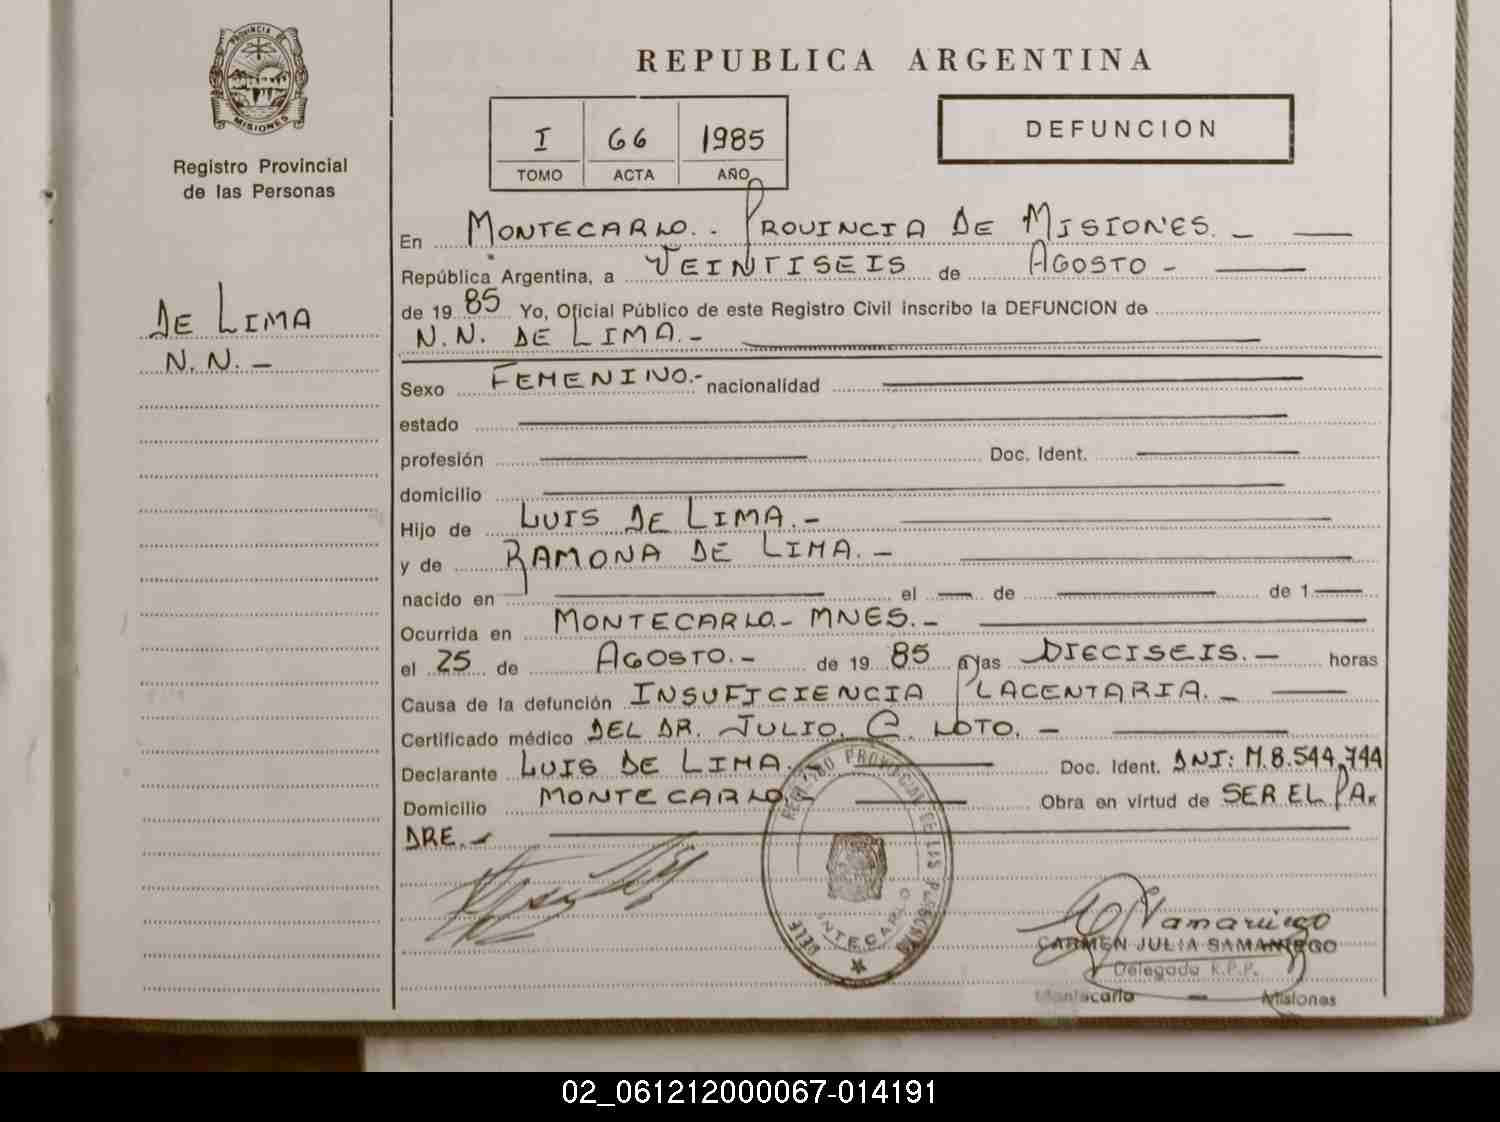 PROVINCIA DE
MISIONES
Registro Provincial
de las Personas
DE LIMA
N.N. -
REPUBLICA ARGENTINA
I 66 1985
TOMO ACTA AÑO
DEFUNCION
En MONTECARLO.- PROVINCIA DE MISIONES. -
República Argentina, a VEINTISEIS de AGOSTO -
de 19 85 Yo, Oficial Público de este Registro Civil inscribo la DEFUNCION de
N.N. DE LIMA.-
Sexo FEMENINO.- nacionalidad
estado
profesión Doc. Ident.
domicilio
Hijo de LUIS DE LIMA.-
y de RAMONA DE LIMA.-
nacido en el de de 1
Ocurrida en MONTECARLO.- MNES.-
el 25 de AGOSTO.- de 19 85 a las DIECISEIS.- horas
Causa de la defunción INSUFICIENCIA PLACENTARIA.-
Certificado médico DEL DR. JULIO. C. LOTO. -
Declarante LUIS DE LIMA. Doc. Ident. DNI: M.8.544.744
Domicilio MONTECARLO.- Obra en virtud de SER EL PA-
DRE.-
REGISTRO PROVINCIAL DE LAS PERSONAS
Samaniego
CARMEN JULIA SAMANIEGO
Delegada R.P.P.
Montecarlo - Misiones
02_061212000067-014191